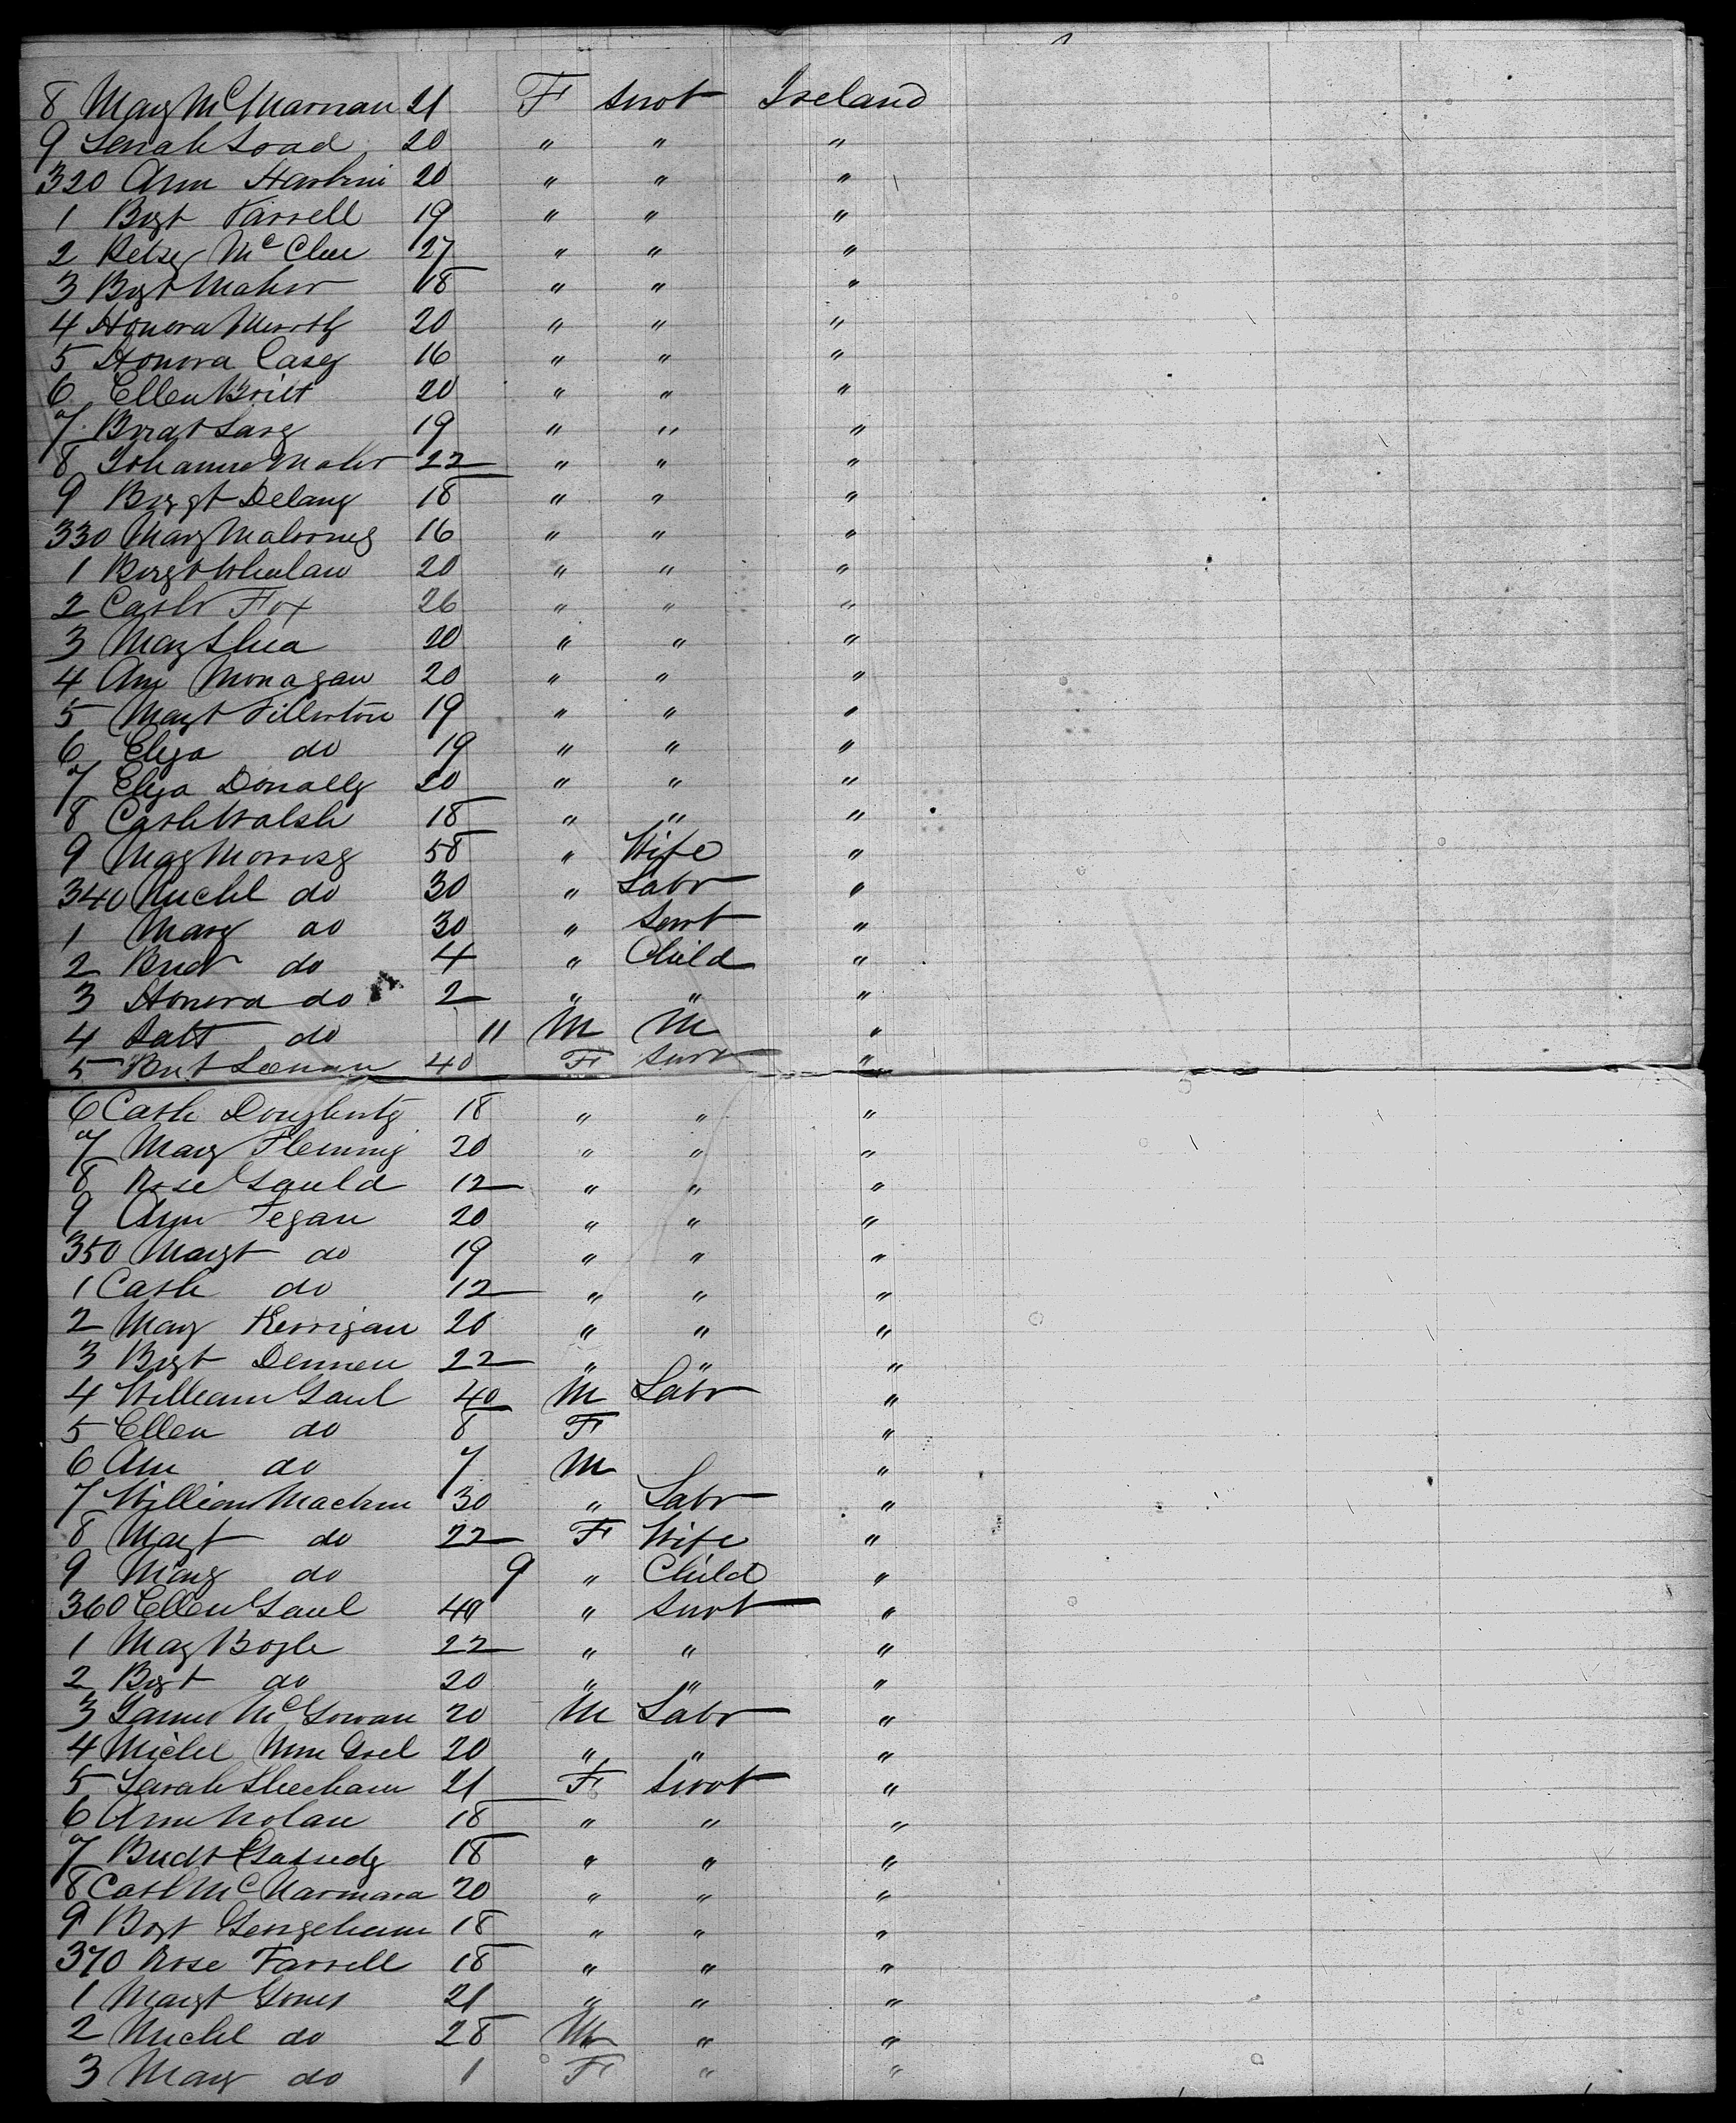 8 Mary McMarnan 21 F Servt Ireland
9 Sarah Load 20 " " "
320 Ann Harbini 20 " " "
1 Bgt Farrell 19 " " "
2 Betsy McClue 27 " " "
3 Bgt Maher 18 " " "
4 Honora Murthy 20 " " "
5 Honora Casey 16 " " "
6 Ellen Britt 20 " " "
7 Bridt 19 " " "
8 Johanna Maher 22 " " "
9 Brgt Delany 18 " " "
330 Mary Maloney 16 " " "
1 Brgt Whelan 20 " " "
2 Cath Fox 26 " " "
3 Mary Shea 20 " " "
4 Ann Monagan 20 " " "
5 Margt Fillerton 19 " " "
6 Eliza do 19 " " "
7 Eliza Donally 20 " " "
8 Cath Walsh 18 " " "
9 Mary Morrisy 58 " Wife "
340 Michl do 30 " Labr "
1 Mary do 30 " Servt "
2 Bridt do 4 " Child "
3 Honora do 2 " " "
4 Patt do 11 M M "
5 Brt 40 F Servt "
6 Cath Dougherty 18 " " "
7 Mary Fleming 20 " " "
8 Rose Gauld 12 " " "
9 Ann Fegan 20 " " "
350 Margt do 19 " " "
1 Cath do 12 " " "
2 Mary Kerrigan 20 " " "
3 Brgt Dennen 22 " " "
4 William Gaul 40 M Labr "
5 Ellen do 8 F "
6 Ann do 7 M "
7 William Machin 30 " Labr "
8 Margt do 22 F Wife "
9 Mary do 9 " Child "
360 Ellen Gaul 40 " Servt "
1 Mary Boyle 22 " " "
2 Brgt do 20 " " "
3 James McGowan 20 M Labr "
4 Michl 20 " " "
5 Sarah Sheehan 21 F Servt "
6 Ann Nolan 18 " " "
7 Bridt Cassedy 18 " " "
8 Cath McNarmara 20 " " "
9 Brgt Geogeham 18 " " "
370 Rose Farrell 18 " " "
1 Margt Jones 21 " " "
2 Michl do 28 M " "
3 Mary do 1 F " "